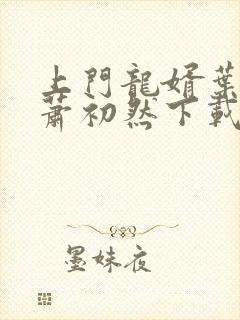 上門龍婿葉
蕭初然下載
墨妹夜